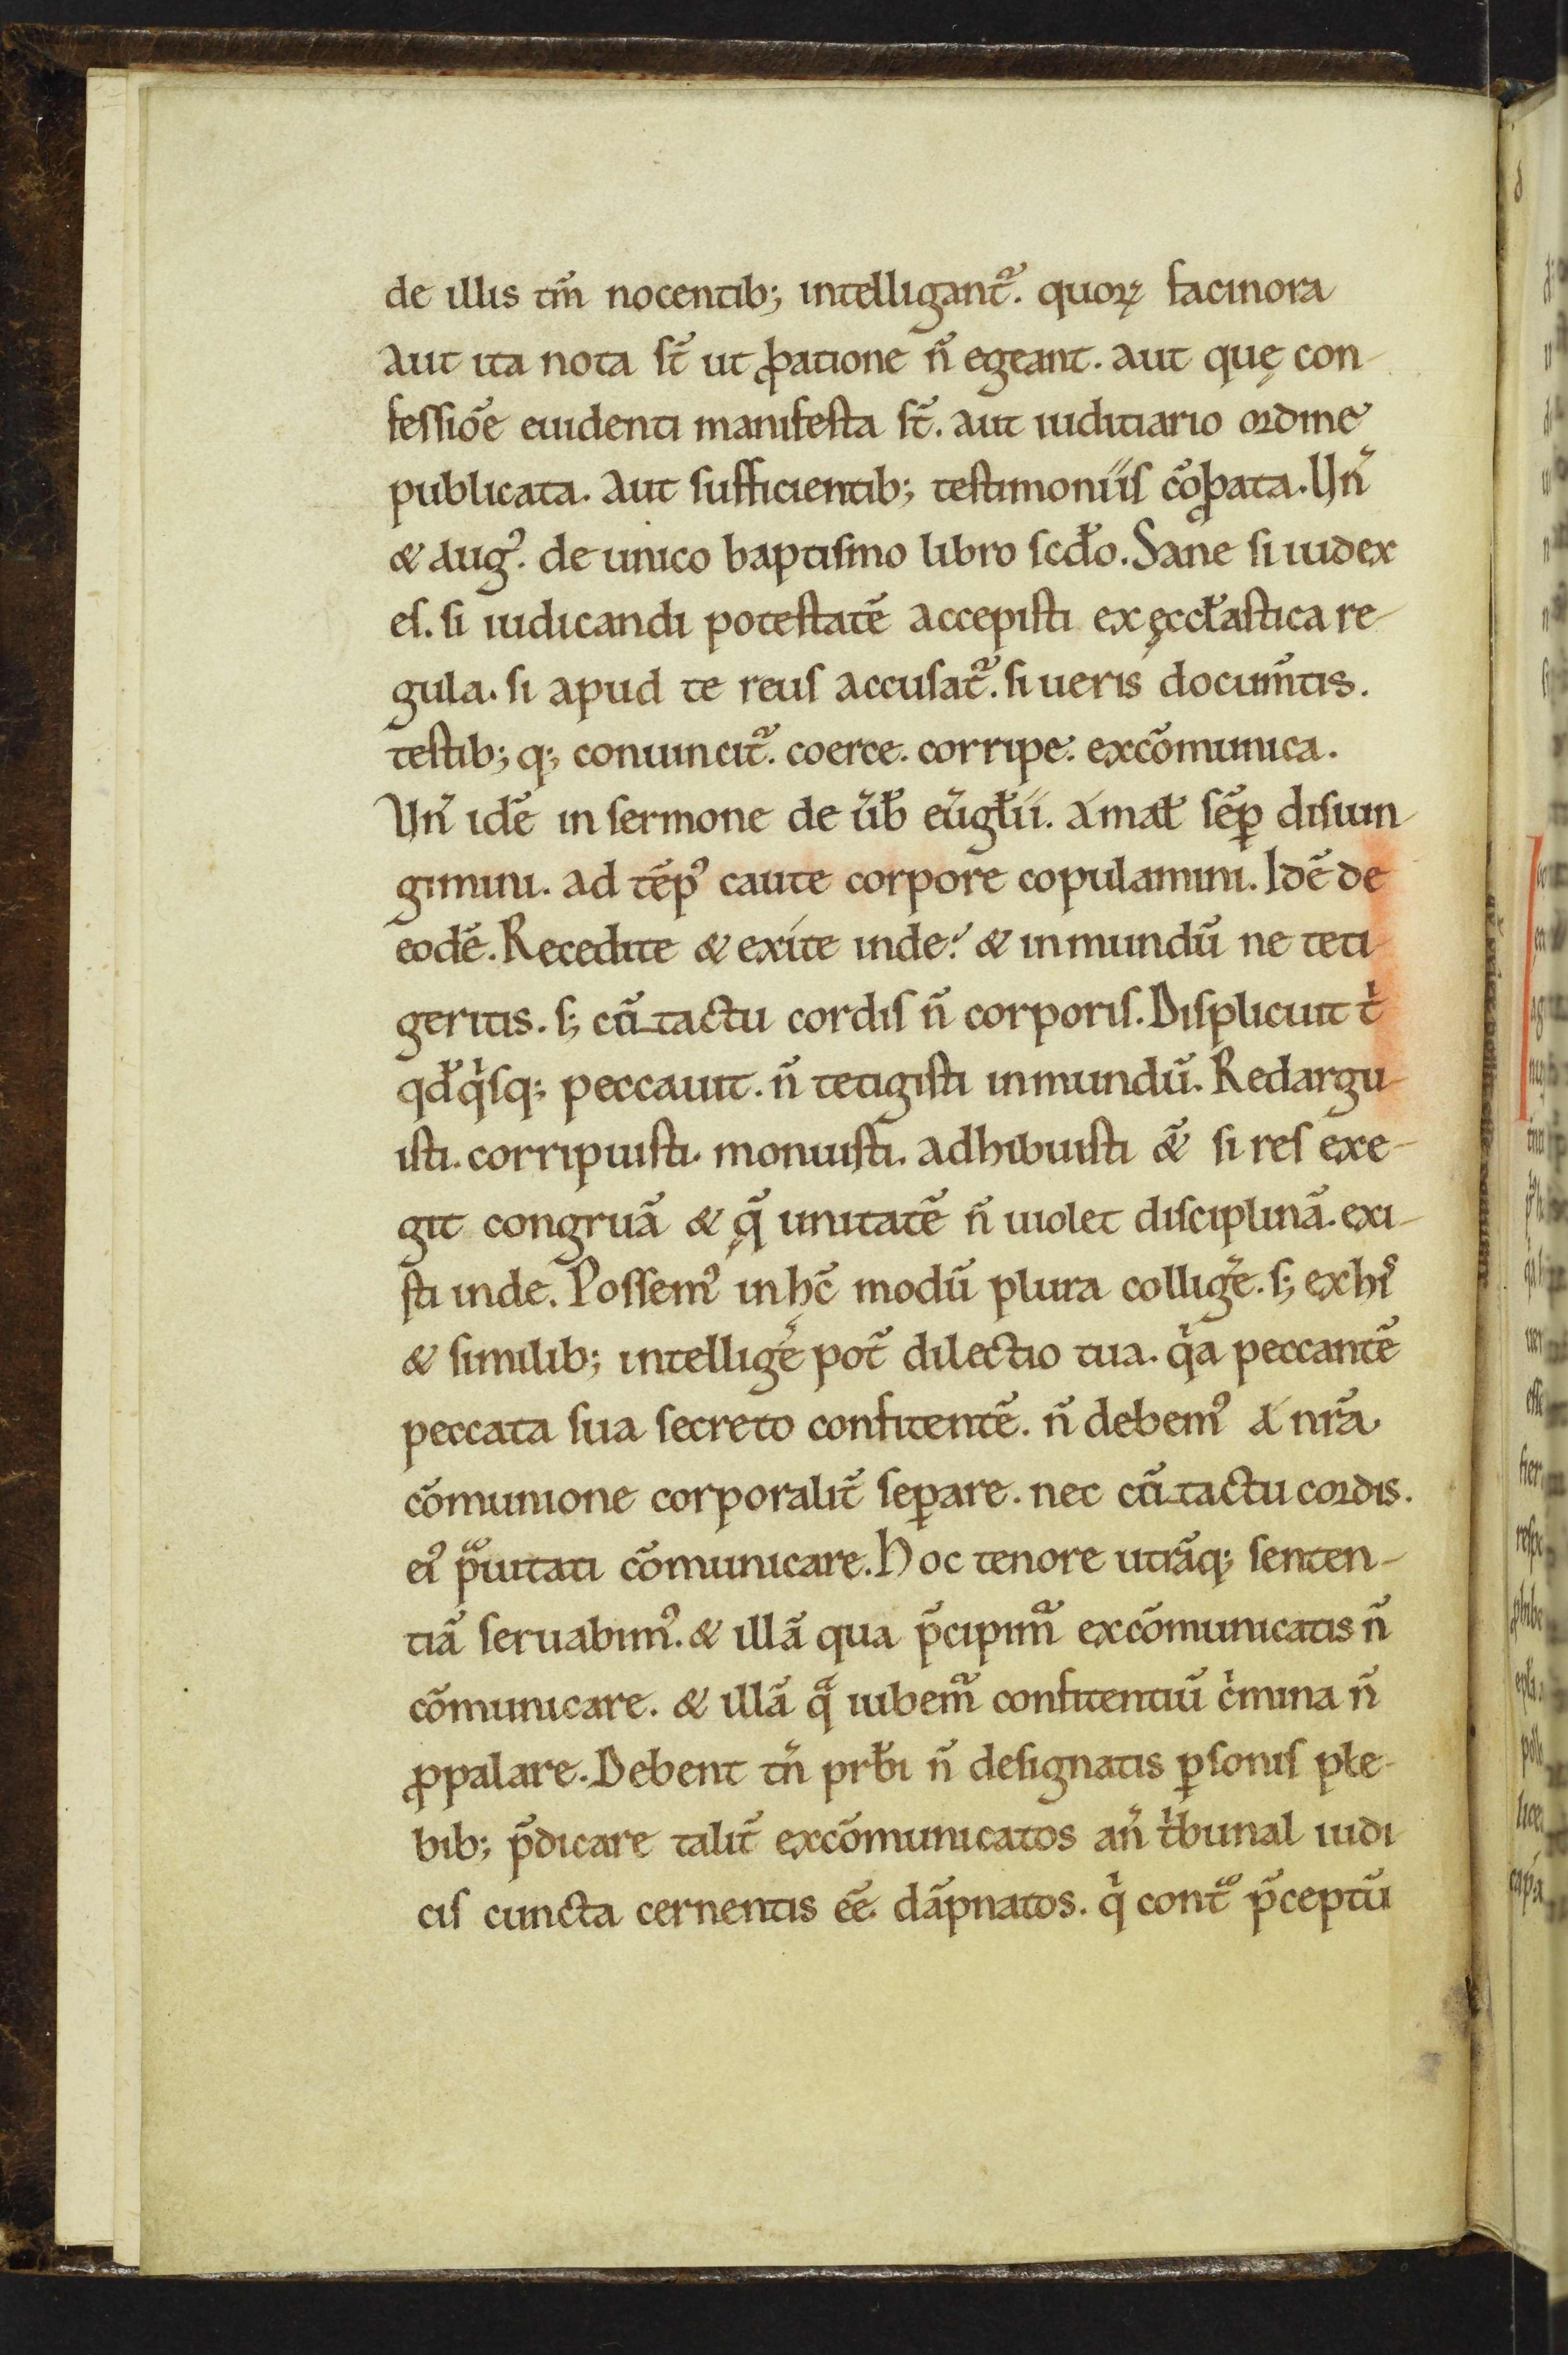 de illis tm̄ nocentib; intelligant᷑. quoꝝ facinora
aut ita nota st̄ ut ꝓbatione n̄ egeant. aut quę con-
fessiōe euidenti manifesta st̄. aut iuditiario ordine
publicata. aut sufficientib; testimoniis cōꝓbata. Vn̄
& aug᾽. de unico baptismo libro scd̄o. Sane si iudex
es. si iudicandi potestatē accepisti ex ęccl̄astica re-
gula. si apud te reus accusat᷑. si ueris docum̄tis.
testib; q; conuincit᷑. coerce. corripe. excōmunica.
Vn̄ idē in sermone de ūb̄ eūgl̄ii. A mal̄ sēp̲ disiun-
gimini. ad tēp᾽ caute corpore copulamini. Idē de
eodē. Recedite & exite inde. & inmundū ne teti-
geritis. s; cū tactu cordis n̄ corporis. Displicuit tⁱ
qd̄ qⁱsq; peccauit. n̄ tetigisti inmundū. Redargu-
isti. corripuisti. monuisti. adhibuisti &̄ si res exe-
git congruā & q̄ unitatē n̄ uiolet disciplinā. exi-
sti inde. Possem᾽ in hc̄ modū plura colliḡe. s; ex hi᾽
& similib; intelliḡe pot̄ dilectio tua. qⁱa peccantē
peccata sua secreto confitentē. n̄ debem᾽ a nr̄a
cōmunione corporalit̄ sep̲are. nec cū tactu cordis.
ei᾽ pᵃuitati cōmunicare. Hoc tenore utrāq; senten-
tiā seruabim᾽. & illā qua p̄cipim᷑ excōmunicatis n̄
cōmunicare. & illā qᵃ iubem᷑ confitentiū cⁱmina n̄
ꝓpalare. Debent tn̄ prb̄i n̄ designatis p̲sonis ple-
bib; p̄dicare talit̄ excōmunicatos an̄ tⁱbunal iudi-
cis cuncta cernentis ēē dāpnatos. qⁱ contᵃ p̄ceptū